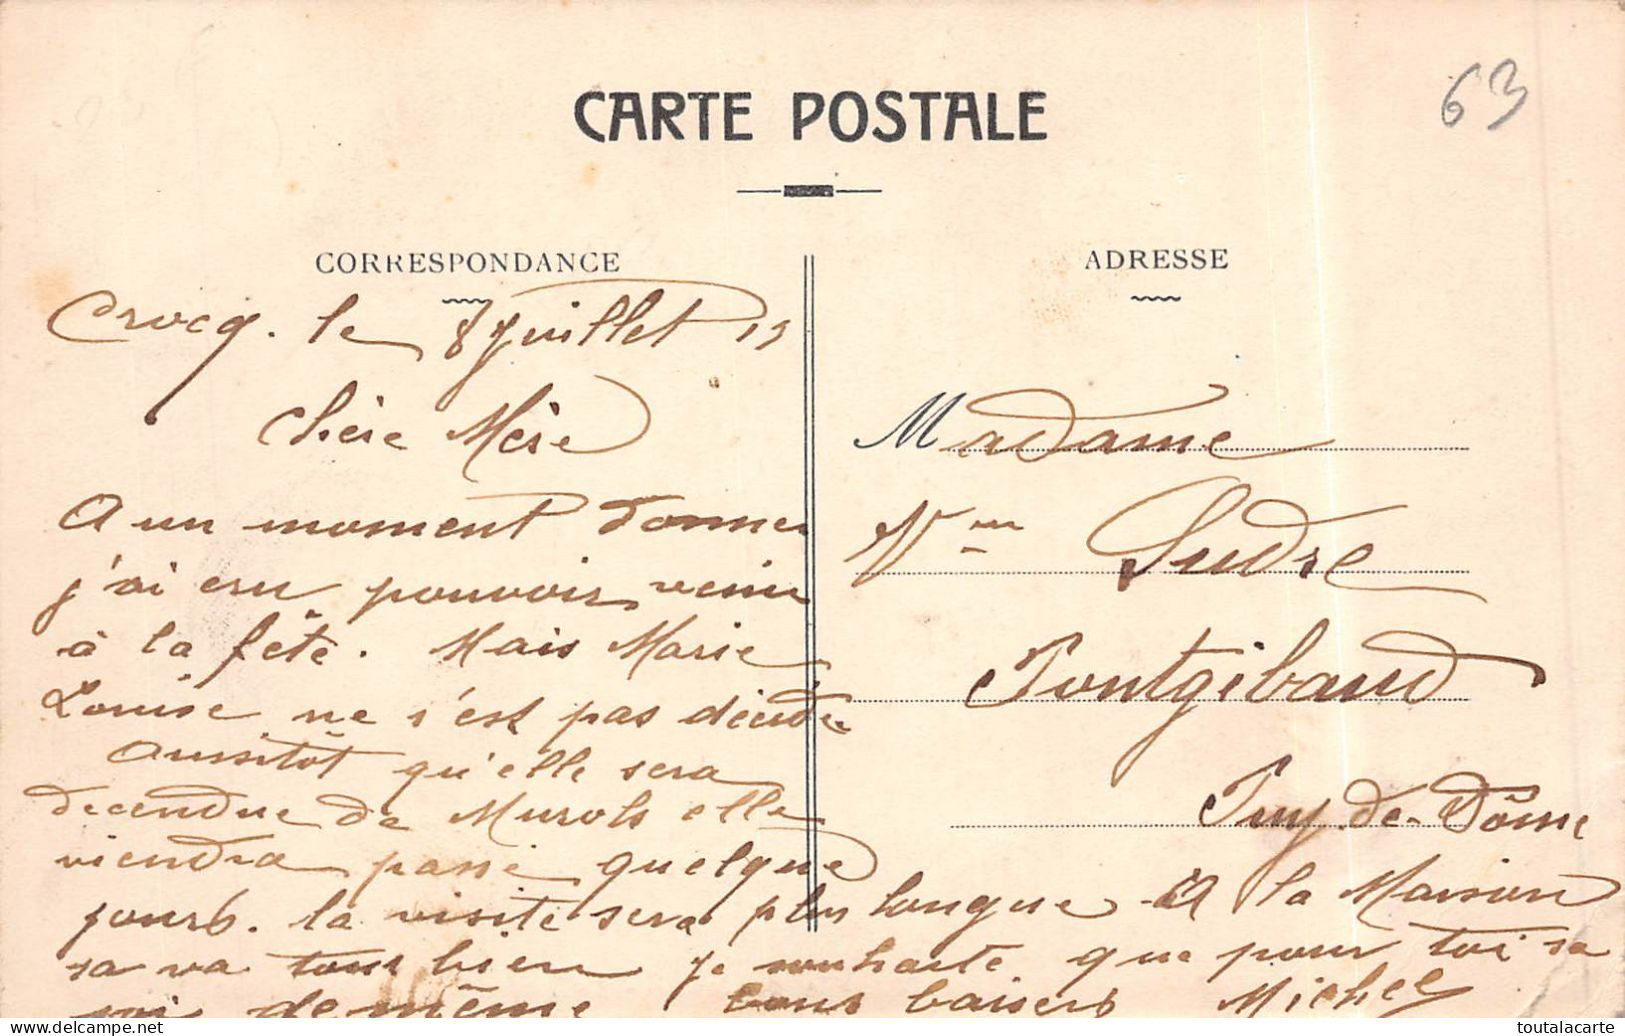 CARTE POSTALE
63
CORRESPONDANCE
ADRESSE
Crocq. le 8 Juillet 13
Chère Mère
A un moment donner
j'ai cru pouvoir venir
à la fête. Mais Marie
Louise ne s'est pas décidée
Aussitôt qu'elle sera
decendue de Murols elle
viendra passé quelque
jours. la visite sera plus longue A la Maison
sa va tous bien je souhaite que pour toi sa
soi de même bons baisers Michel
Madame
Vve Sudre
Pontgibaud
Puy-de-Dôme
toutalacarte